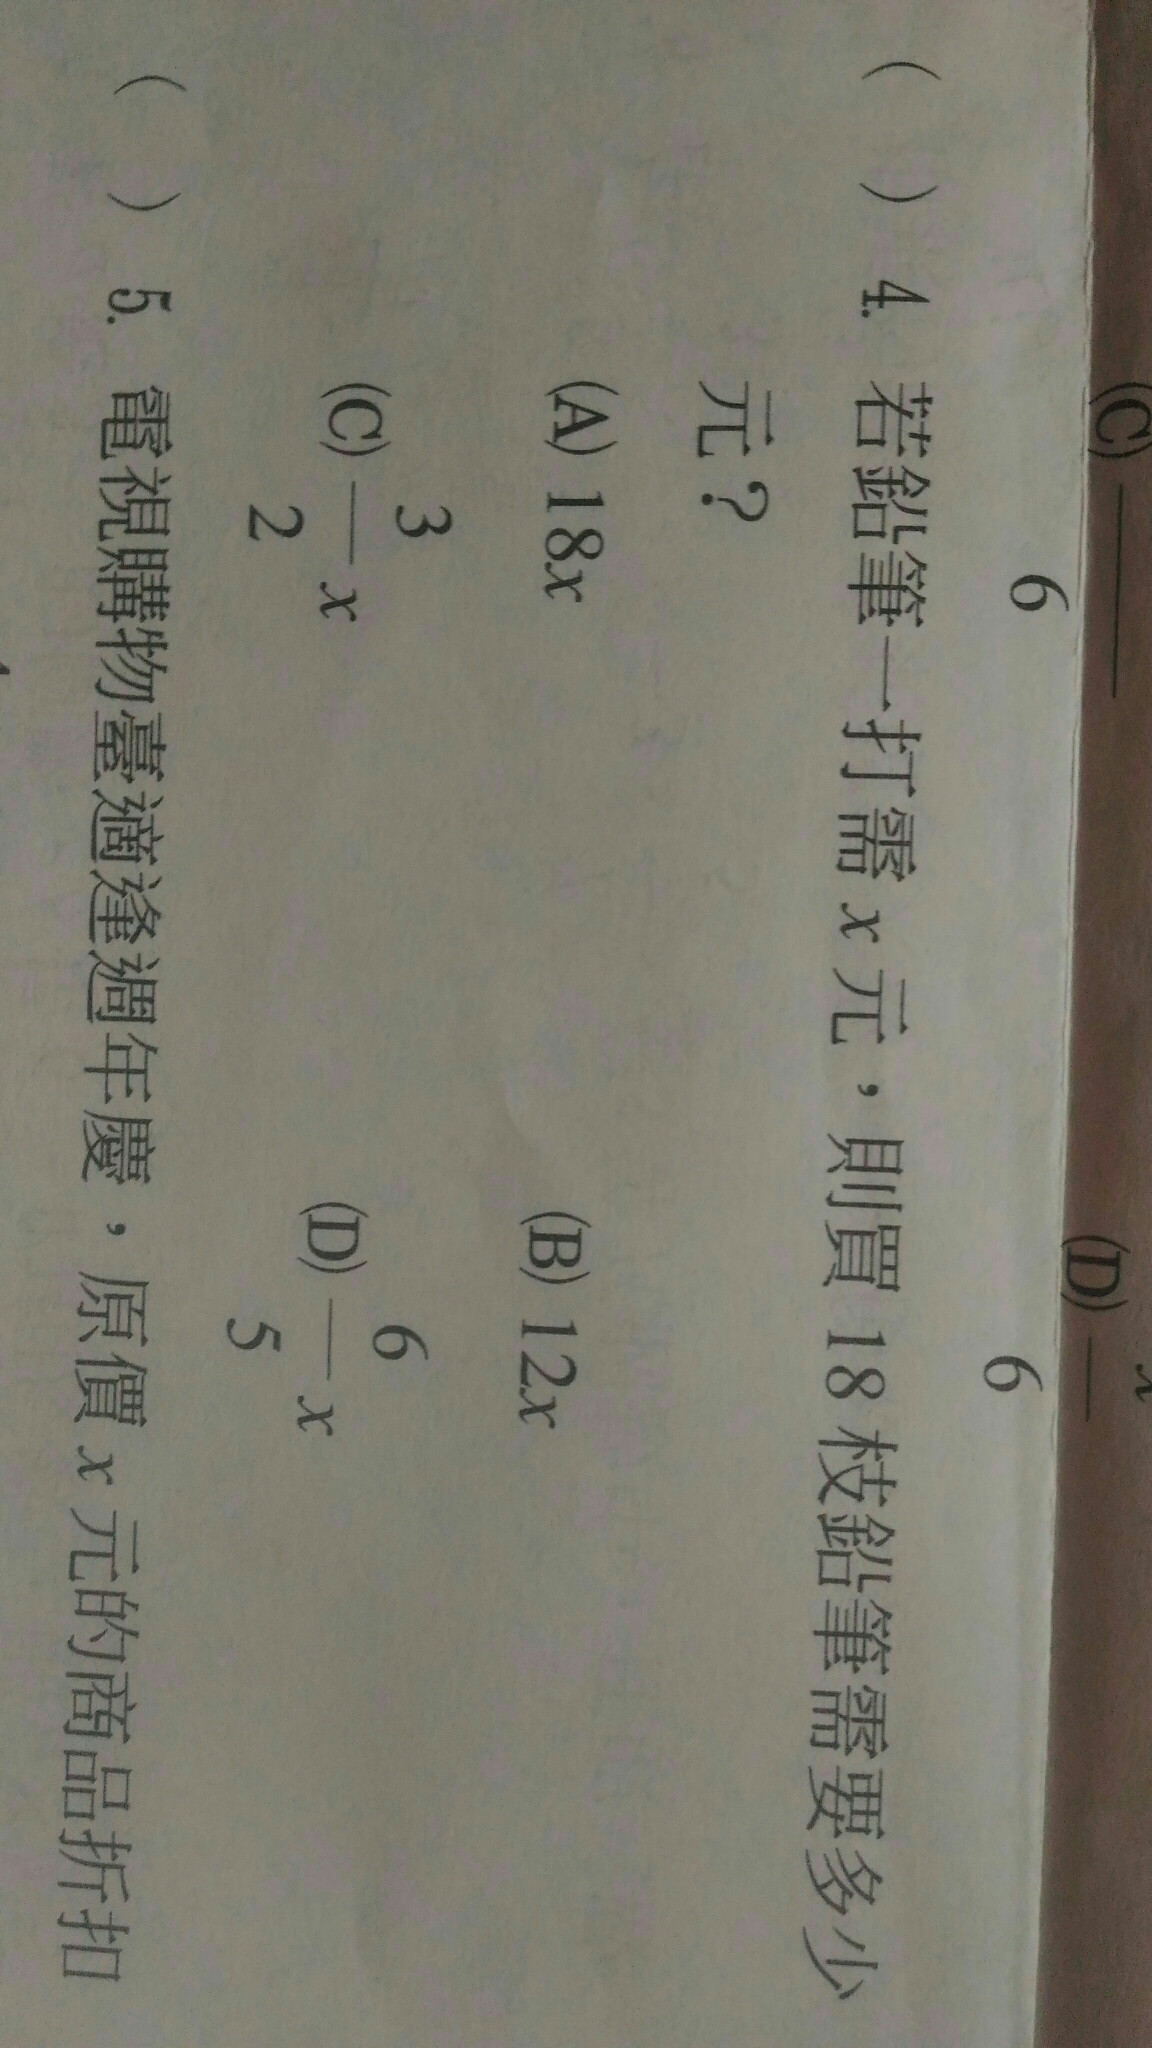 (C) 6 (D) x/6
( ) 4. 若鉛筆一打需 x 元，則買 18 枝鉛筆需要多少
元？
(A) 18x (B) 12x
(C) 3/2 x (D) 6/5 x
( ) 5. 電視購物臺適逢週年慶，原價 x 元的商品折扣